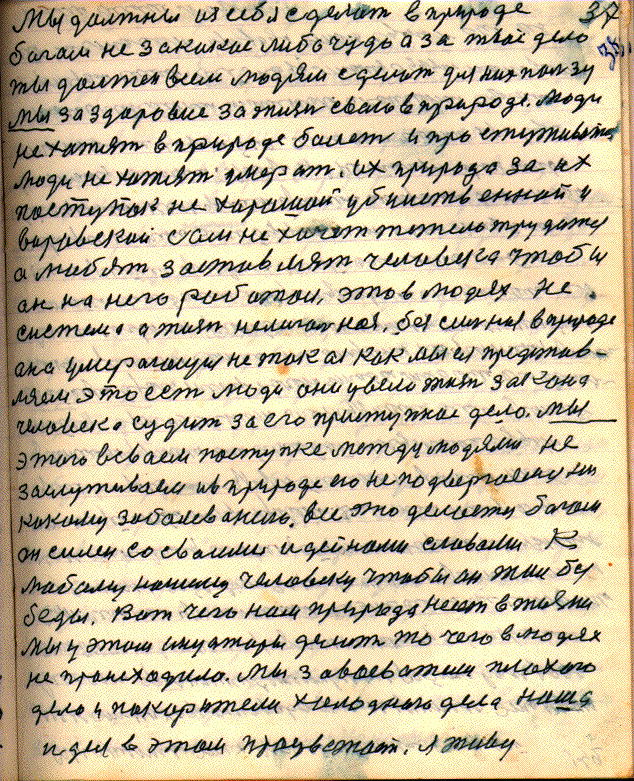 Мы должны из себя сделат в природе 37
богом не за какое либо чудо а за твое дело
ты должен всем людям сделат для них ползу
мы за здоровие за жизн свою в природе. Люди
не хотят в природе болет и простуживатся
люди не хотят умерат. их природа за их
поступок не хороший убиственной и
воровской сам не хочет тяжело трудится
а любят заставлят человека чтобы
он на него работал, это в людях не
система а жизн нелегалная, безсилная в природе
она умерающая не такая как мы ея представ-
ляем это ест люди они увележат закона
человека судит за его приступное дело. мы
этого в своем поступке между людями не
заслуживаем и в природе его не подвергаем ни
какому заболеванию. все это делается богом
он силен со своими идейными словами к
любому нашему человеку чтобы он жил без
беды. Вот чего нам природа несет в жизни
мы у этом инуаторы делат то чего в людях
не происходило. мы завоеватели плохого
дела и покорители холодного дела наша
идея в этом процветат. я живу